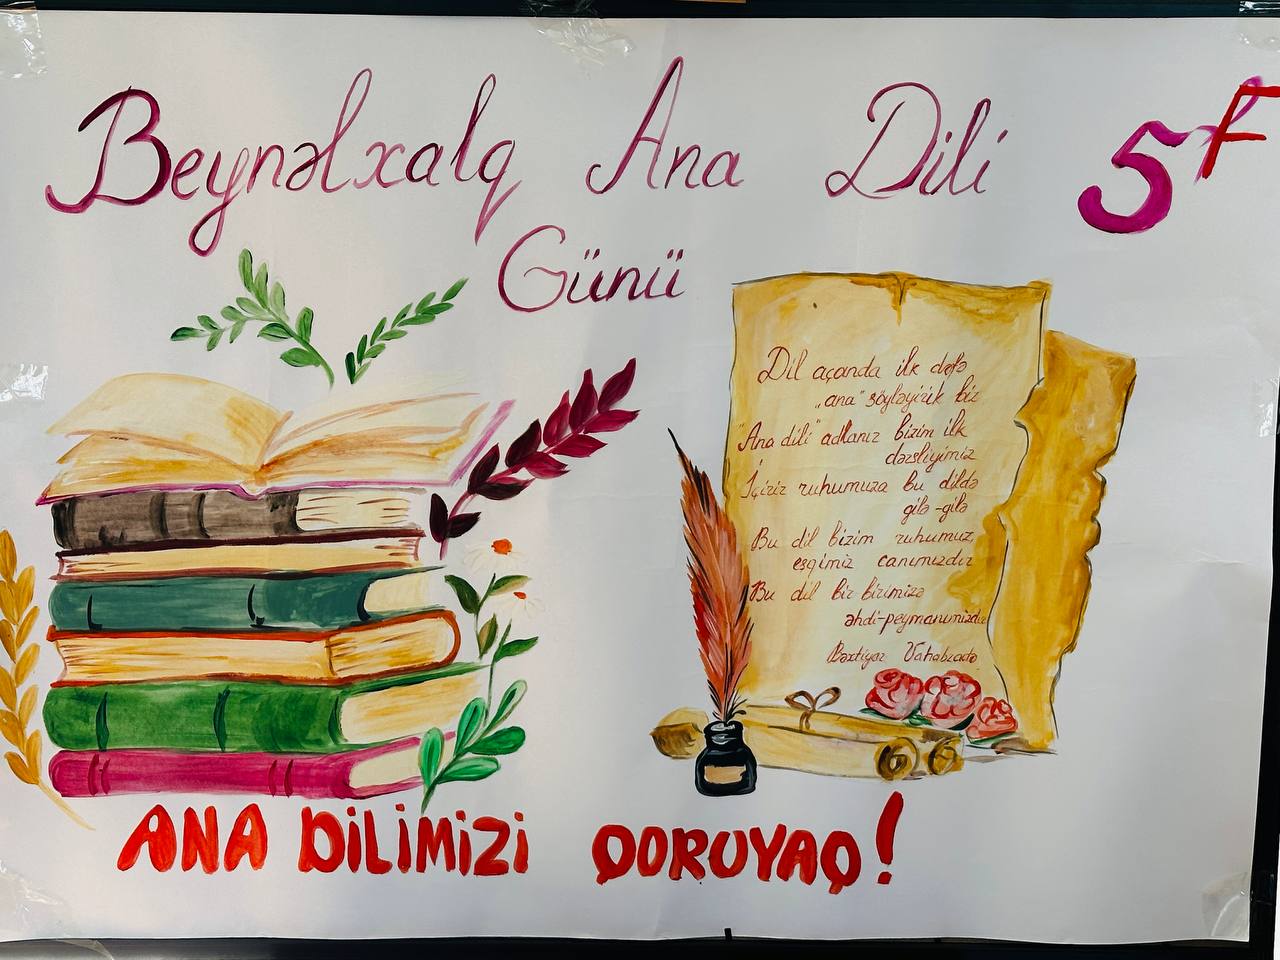 Beynəlxalq Ana Dili 5F
Günü
Dil açanda ilk dəfə
„ana" söyləyirik biz
"Ana dili" adlanır bizim ilk
dərsliyimiz
İçirir ruhumuza bu dildə
gilə-gilə
Bu dil bizim ruhumuz,
eşqimiz canımızdır
Bu dil bir birimizə
əhdi-peymanımızdır
Bəxtiyar Vahabzadə
ANA DİLİMİZİ QORUYAQ!